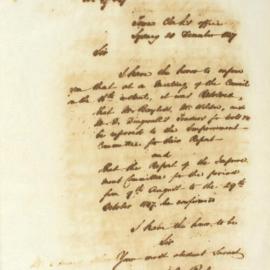 Town Clerk's Office
Sydney 20 December 1847
Sir
I have the honor to inform
you that at a Meeting of the Council
on the 18th instant, it was Resolved
that Mr Wilson, and
Tenders for
be referred to the Improvement
Committee for their Report
and
That the Report of the Improve
ment Committee for the period
from 9th August to the 29th
October 1847. be confirmed
I have the honor to be
Sir
Your most obedient Servant